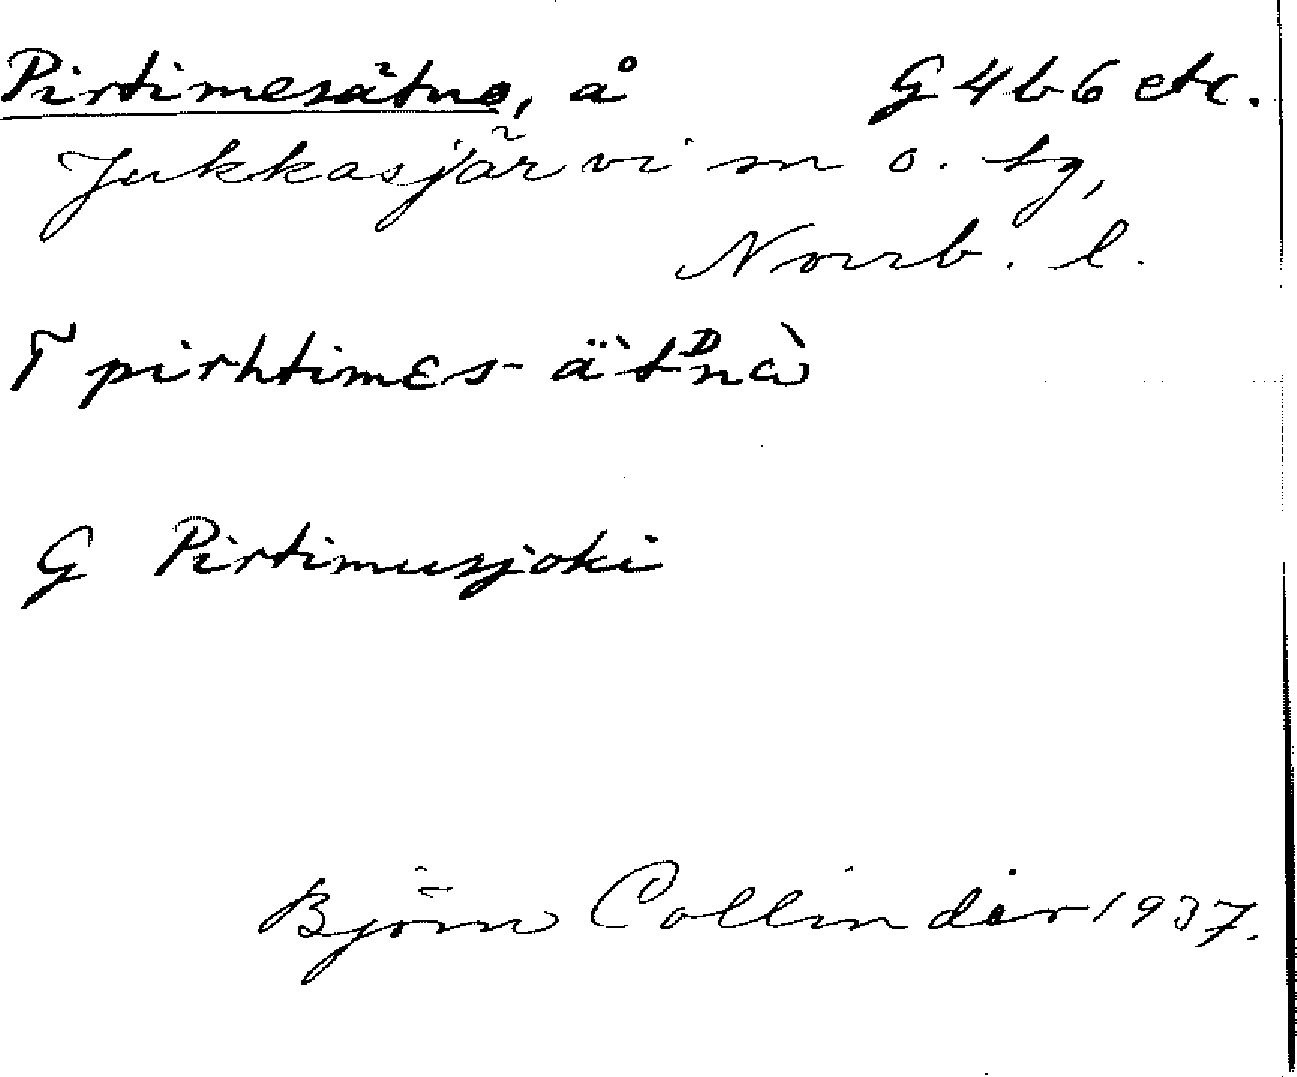 Pirtimesätno, å G 4 b 6 etc.
Jukkasjärvi sn o. tg,
Norrb. l.
T pirhtimɛs-ä̀tᴰnà
G Pirtimusjoki
Björn Collinder 1937.